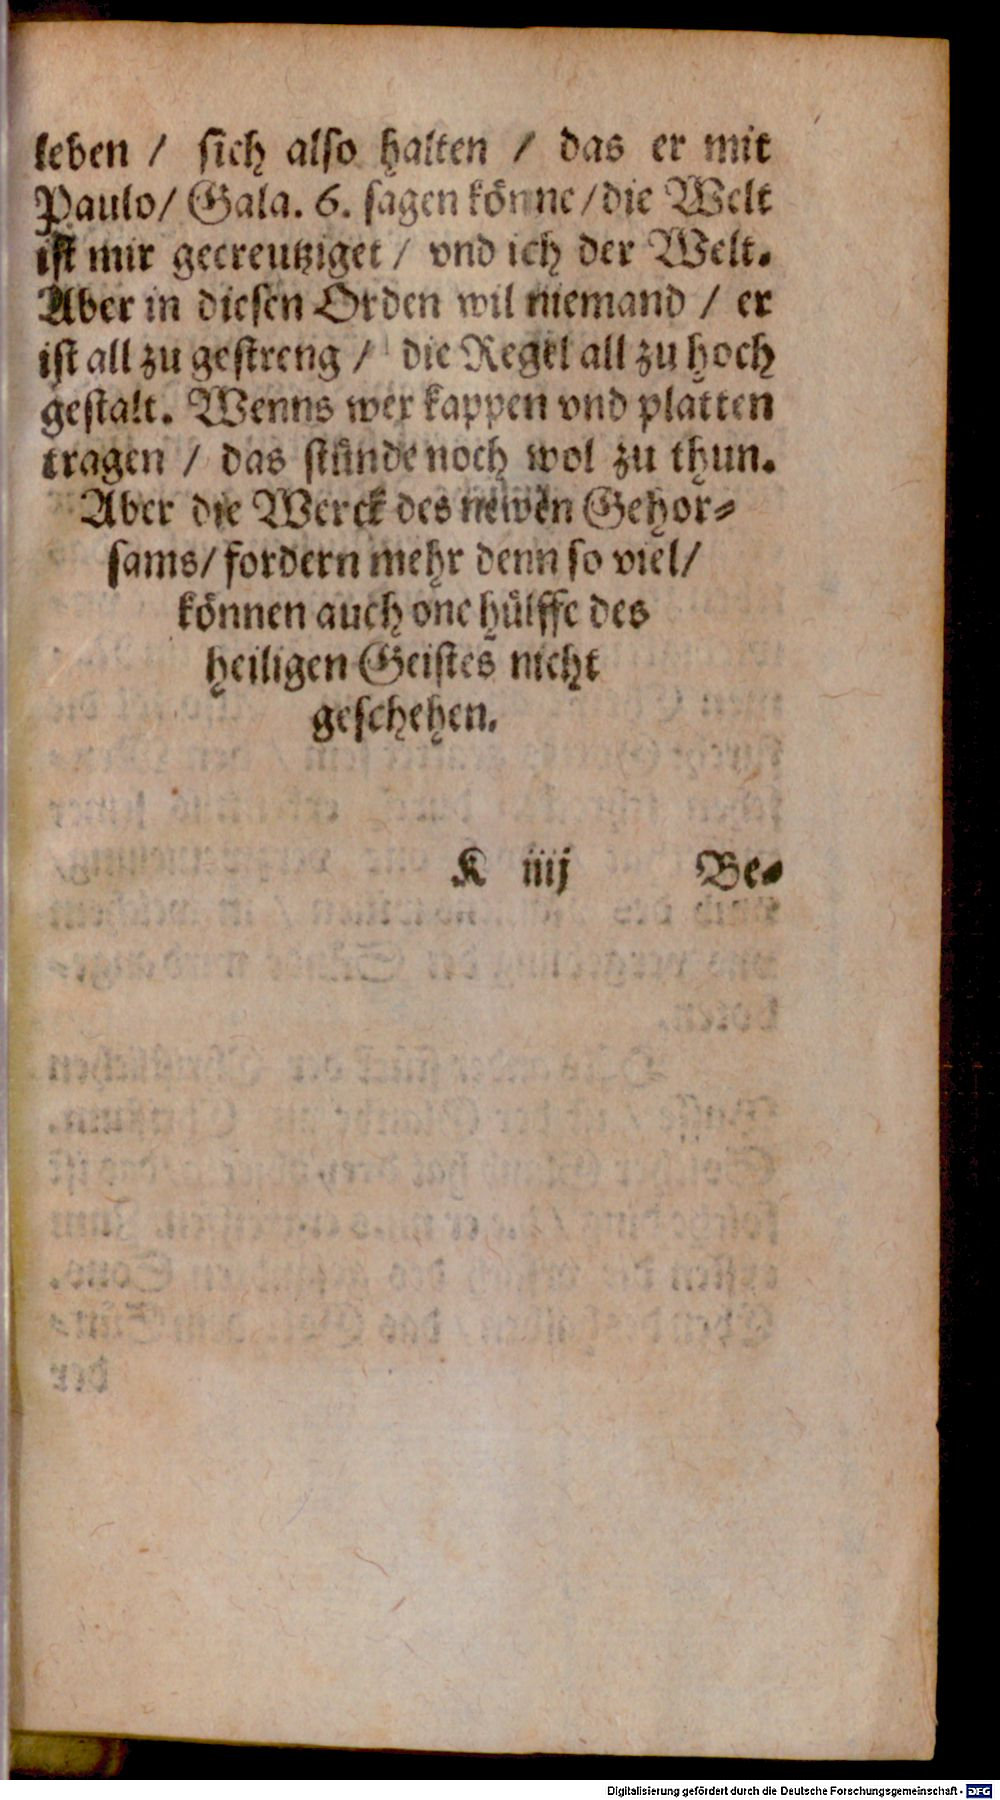 leben / sich also halten / das er mit
Paulo/ Gala. 6. sagen könne/die Welt
ist mir gecreutziget / vnd ich der Welt.
Aber in diesen Orden wil niemand / er
ist all zu gestreng / die Regel all zu hoch
gestalt. Wenns wer kappen vnd platten
tragen / das stünde noch wol zu thun.
Aber die Werck des newen Gehor⸗
sams/ fordern mehr denn so viel/
können auch one hülffe des
heiligen Geistes nicht
geschehen.
K iiij Be⸗
Digitalisierung gefördert durch die Deutsche Forschungsgemeinschaft - DFG